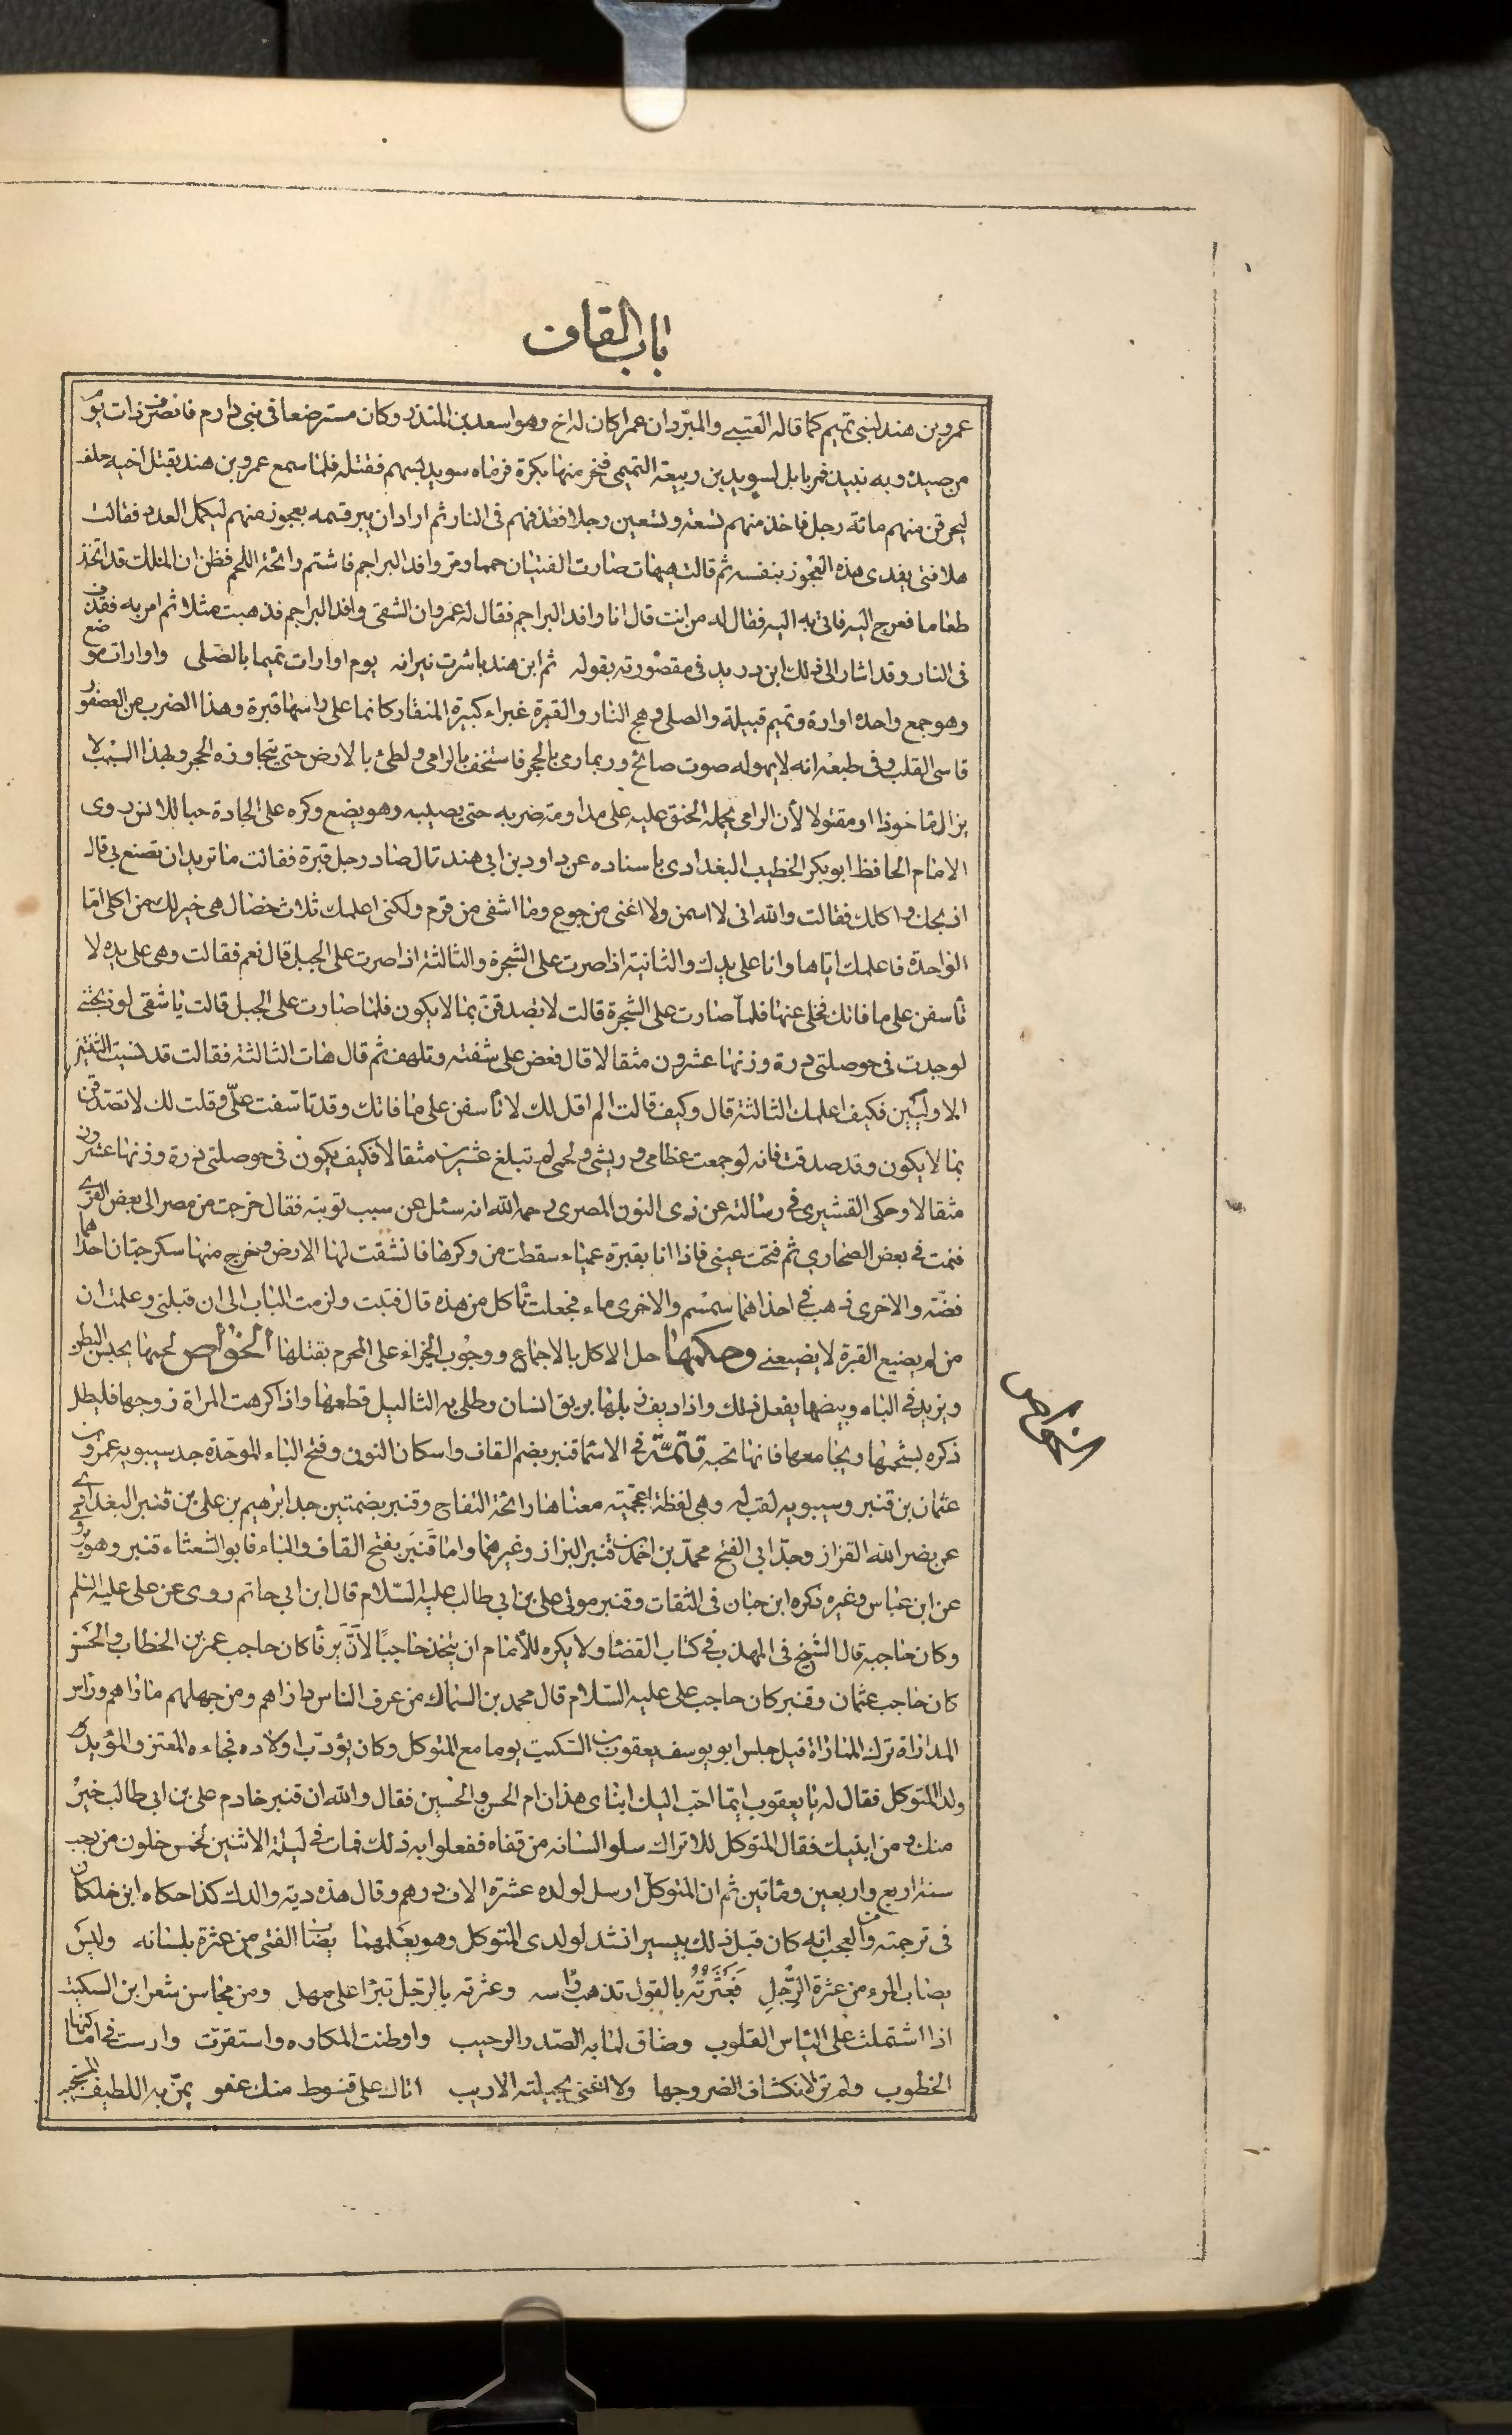 باب القاف
عمرو بن هند لبنى تميم كما قاله القتيبے والمبرّد ان عمرا كان له اخ وهو اسعد بن المنذر وكان مسترضعا فى بنى دارم فانصرف ذات يوم
من صيده وبه نبيذ فمر بابل لسويد بن ربيعة التميمى فنحر منها بكرة فرماه سويد بسهم فقتله فلما سمع عمرو بن هند بقتل اخيه حلف
ليحرقن منهم مائة رجل فاخذ منهم تسعة وتسعين رجلا فقذفهم فى النار ثم اراد ان يبر قسمه بعجوز منهم ليكمل العدد فقالت
هلا فتى يفدى هذه العجوز بنفسه ثم قالت هيهات صارت الفتيان حمما ومر وافد البراجم فاشتم رائحة اللحم فظن ان الملك قد اتخذ
طعاما فعرج اليه فاتى به اليه فقال له من انت قال انا وافد البراجم فقال له عمرو ان الشقى وافد البراجم فذهبت مثلا ثم امر به فقذف
فى النار وقد اشار الى ذلك ابن دريد فى مقصورته بقوله ثم ابن هند باشرت نيرانه يوم اوارات تميما بالصلى واوارات موضع
وهو جمع واحده اوارة وتميم قبيلة والصلى وهج النار والقبرة غبراء كبيرة المنقار كانما على راسها قبرة وهذا الضرب من العصفور
قاسى القلب وفى طبعه انه لا يهوله صوت صائح وربما رمى بالحجر فاستخف بالرامى ولطئ بالارض حتى يتجاوزه الحجر ولهذا السبب لا
يزال ماخوذا او مقتولا لأن الرامى يحمله الحنق عليه على مداومة ضربه حتى يصيبه وهو يضع وكره على الجادة حبا للانس روى
الامام الحافظ ابو بكر الخطيب البغدادى باسناده عن داود بن ابى هند قال صاد رجل قبرة فقالت ما تريد ان تصنع بى قال
اذبحك واكلك فقالت والله انى لا اسمن ولا اغنى من جوع وما اشفى من قرم ولكنى اعلمك ثلاث خصال هى خير لك من اكلى اما
الواحدة فاعلمك اياها وانا على يدك والثانية اذا صرت على الشجرة والثالثة اذا صرت على الجبل قال نعم فقالت وهى على يده لا
تأسفن على ما فاتك فخلى عنها فلما صارت على الشجرة قالت لا تصدقن بما لا يكون فلما صارت على الجبل قالت يا شقى لو ذبحتنى
لوجدت فى حوصلتى درة وزنها عشرون مثقالا قال فعض على شفته وتلهف ثم قال هات الثالثة فقالت قد نسيت الثنتين
الاوليين فكيف اعلمك الثالثة قال وكيف قالت الم اقل لك لا تأسفن على ما فاتك وقد تاسفت علىّ وقلت لك لا تصدقن
بما لا يكون وقد صدقت فانه لو جمعت عظامى وريشى ولحمى لم تبلغ عشرين مثقالا فكيف يكون فى حوصلتى درة وزنها عشرون
مثقالا وحكى القشيرى فى رسالته عن ذى النون المصرى رحمه الله انه سئل عن سبب توبته فقال خرجت من مصر الى بعض القرے
فنمت فے بعض الصحارى ثم فتحت عينى فاذا انا بقبرة عمياء سقطت من وكرها فانشقت لها الارض وخرج منها سكرجتان احداهما
فضة والاخرى ذهب فى احداهما سمسم والاخرى ماء فجعلت تأكل من هذه قال فتبت ولزمت الباب الى ان قبلنى وعلمت ان
من لم يضيع القبرة لا يضيعنے وحكمها حل الاكل بالاجماع ووجوب الجزاء على المحرم بقتلها الخواص لحمها يحبس البطن
ويزيد فى الباه وبيضها يفعل ذلك واذا ديف زبلها بريق انسان وطلى به الثاليل قطعها واذا كرهت المراة زوجها فليطل
ذكره بشحمها ويجامعها فانها تحبه تتمّة فى الاسما قنبر بضم القاف واسكان النون وفتح الباء الموحدة جد سيبويه عمرو بن
الخواص
عثمان بن قنبر وسيبويه لقب له وهى لفظة اعجمية معناها رائحة التفاح وقنبر بضمتين جد ابراهيم بن على بن قنبر البغدادے
عن نصر الله القزاز وجد ابى الفتح محمد بن احمد بن قنبر البزاز وغيرهما واما قَنبَر بفتح القاف والباء فابو الشعثاء قنبر وهو يروى
عن ابن عباس وغيره ذكره ابن حبان فى الثقات وقنبر مولى على بن ابى طالب عليه السلام قال ابن ابى حاتم روى عن على عليه السلم
وكان حاجبه قال الشيخ فى المهذب فے كتاب القضا ولا يكره للأمام ان يتخذ حاجبًا لأن يرفأ كان حاجب عمر بن الخطاب والحسن
كان حاجب عثمان وقنبر كان حاجب على عليه السلام قال محمد بن السماك من عرف الناس داراهم ومن جهلهم ماراهم وراس
المداراة ترك المماراة قيل جلس ابو يوسف يعقوب بن السكيت يوما مع المتوكل وكان يؤدب اولاده فجاءه المعتز والمؤيد
ولدا المتوكل فقال له يا يعقوب ايما احب اليك ابناى هذان ام الحسن والحسين فقال والله ان قنبر خادم على بن ابى طالب خيرٌ
منك ومن ابنيك فقال المتوكل للاتراك سلوا لسانه من قفاه ففعلوا به ذلك فمات فے ليلة الاثنين لخمس خلون من رجب
سنة اربع واربعين ومأتين ثم ان المتوكل ارسل لولده عشرة الاف درهم وقال هذه دية والدك كذا حكاه ابن خلكان
فى ترجمته ومن العجب انه كان قبل ذلك بيسير انشد لولدى المتوكل وهو يعلمهما يصاب الفتى من عثرة بلسانه وليس
يصاب المرء من عثرة الرِّجلِ فَعَثْرَتُهُ بالقول تذهب راسه وعثرته بالرجل تبرا على مهل ومن محاسن شعر ابن السكيت
اذا اشتملت على الياس القلوب وضاق لما به الصدر الرحيب واوطنت المكاره واستقرت وارست فى اماكنها
الخطوب ولم تر لانكشاف الضر وجها ولا اغنى بحيلته الاريب اتاك على قنوط منك عفو يمنّ به اللطيف المستجيب